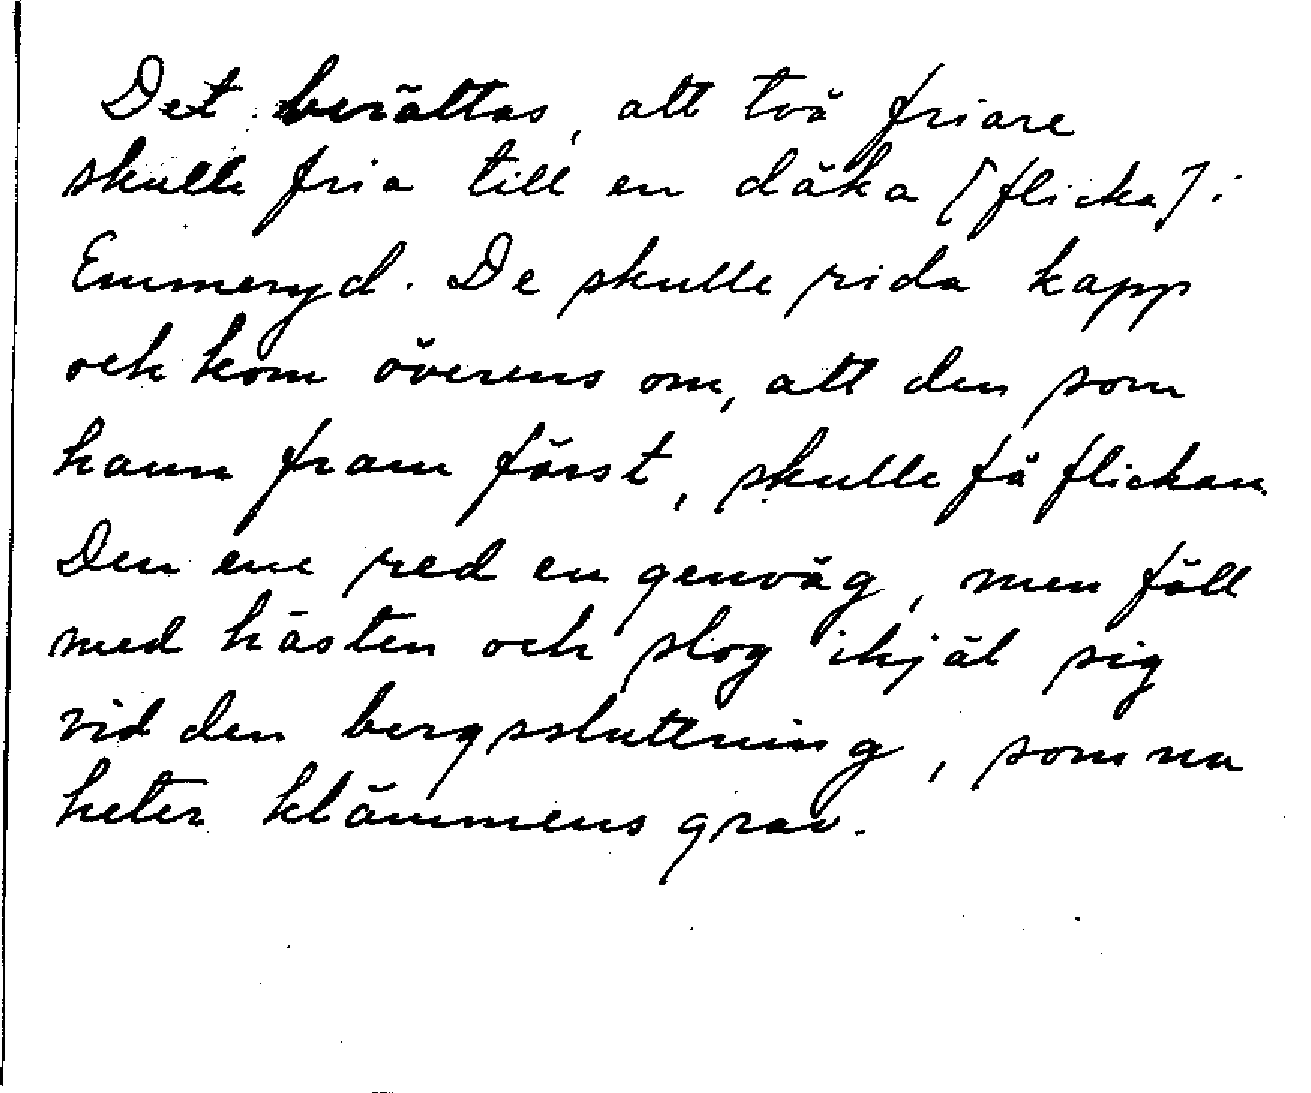 Det berättas, att två friare
skulle fria till en däka [flicka] i
Emmeryd. De skulle rida kapp
och kom överens om, att den som
hann fram först, skulle få flickan.
Den ene red en genväg, men föll
med hästen och slog ihjäl sig
vid den bergssluttning, som nu
heter klämmens grav.